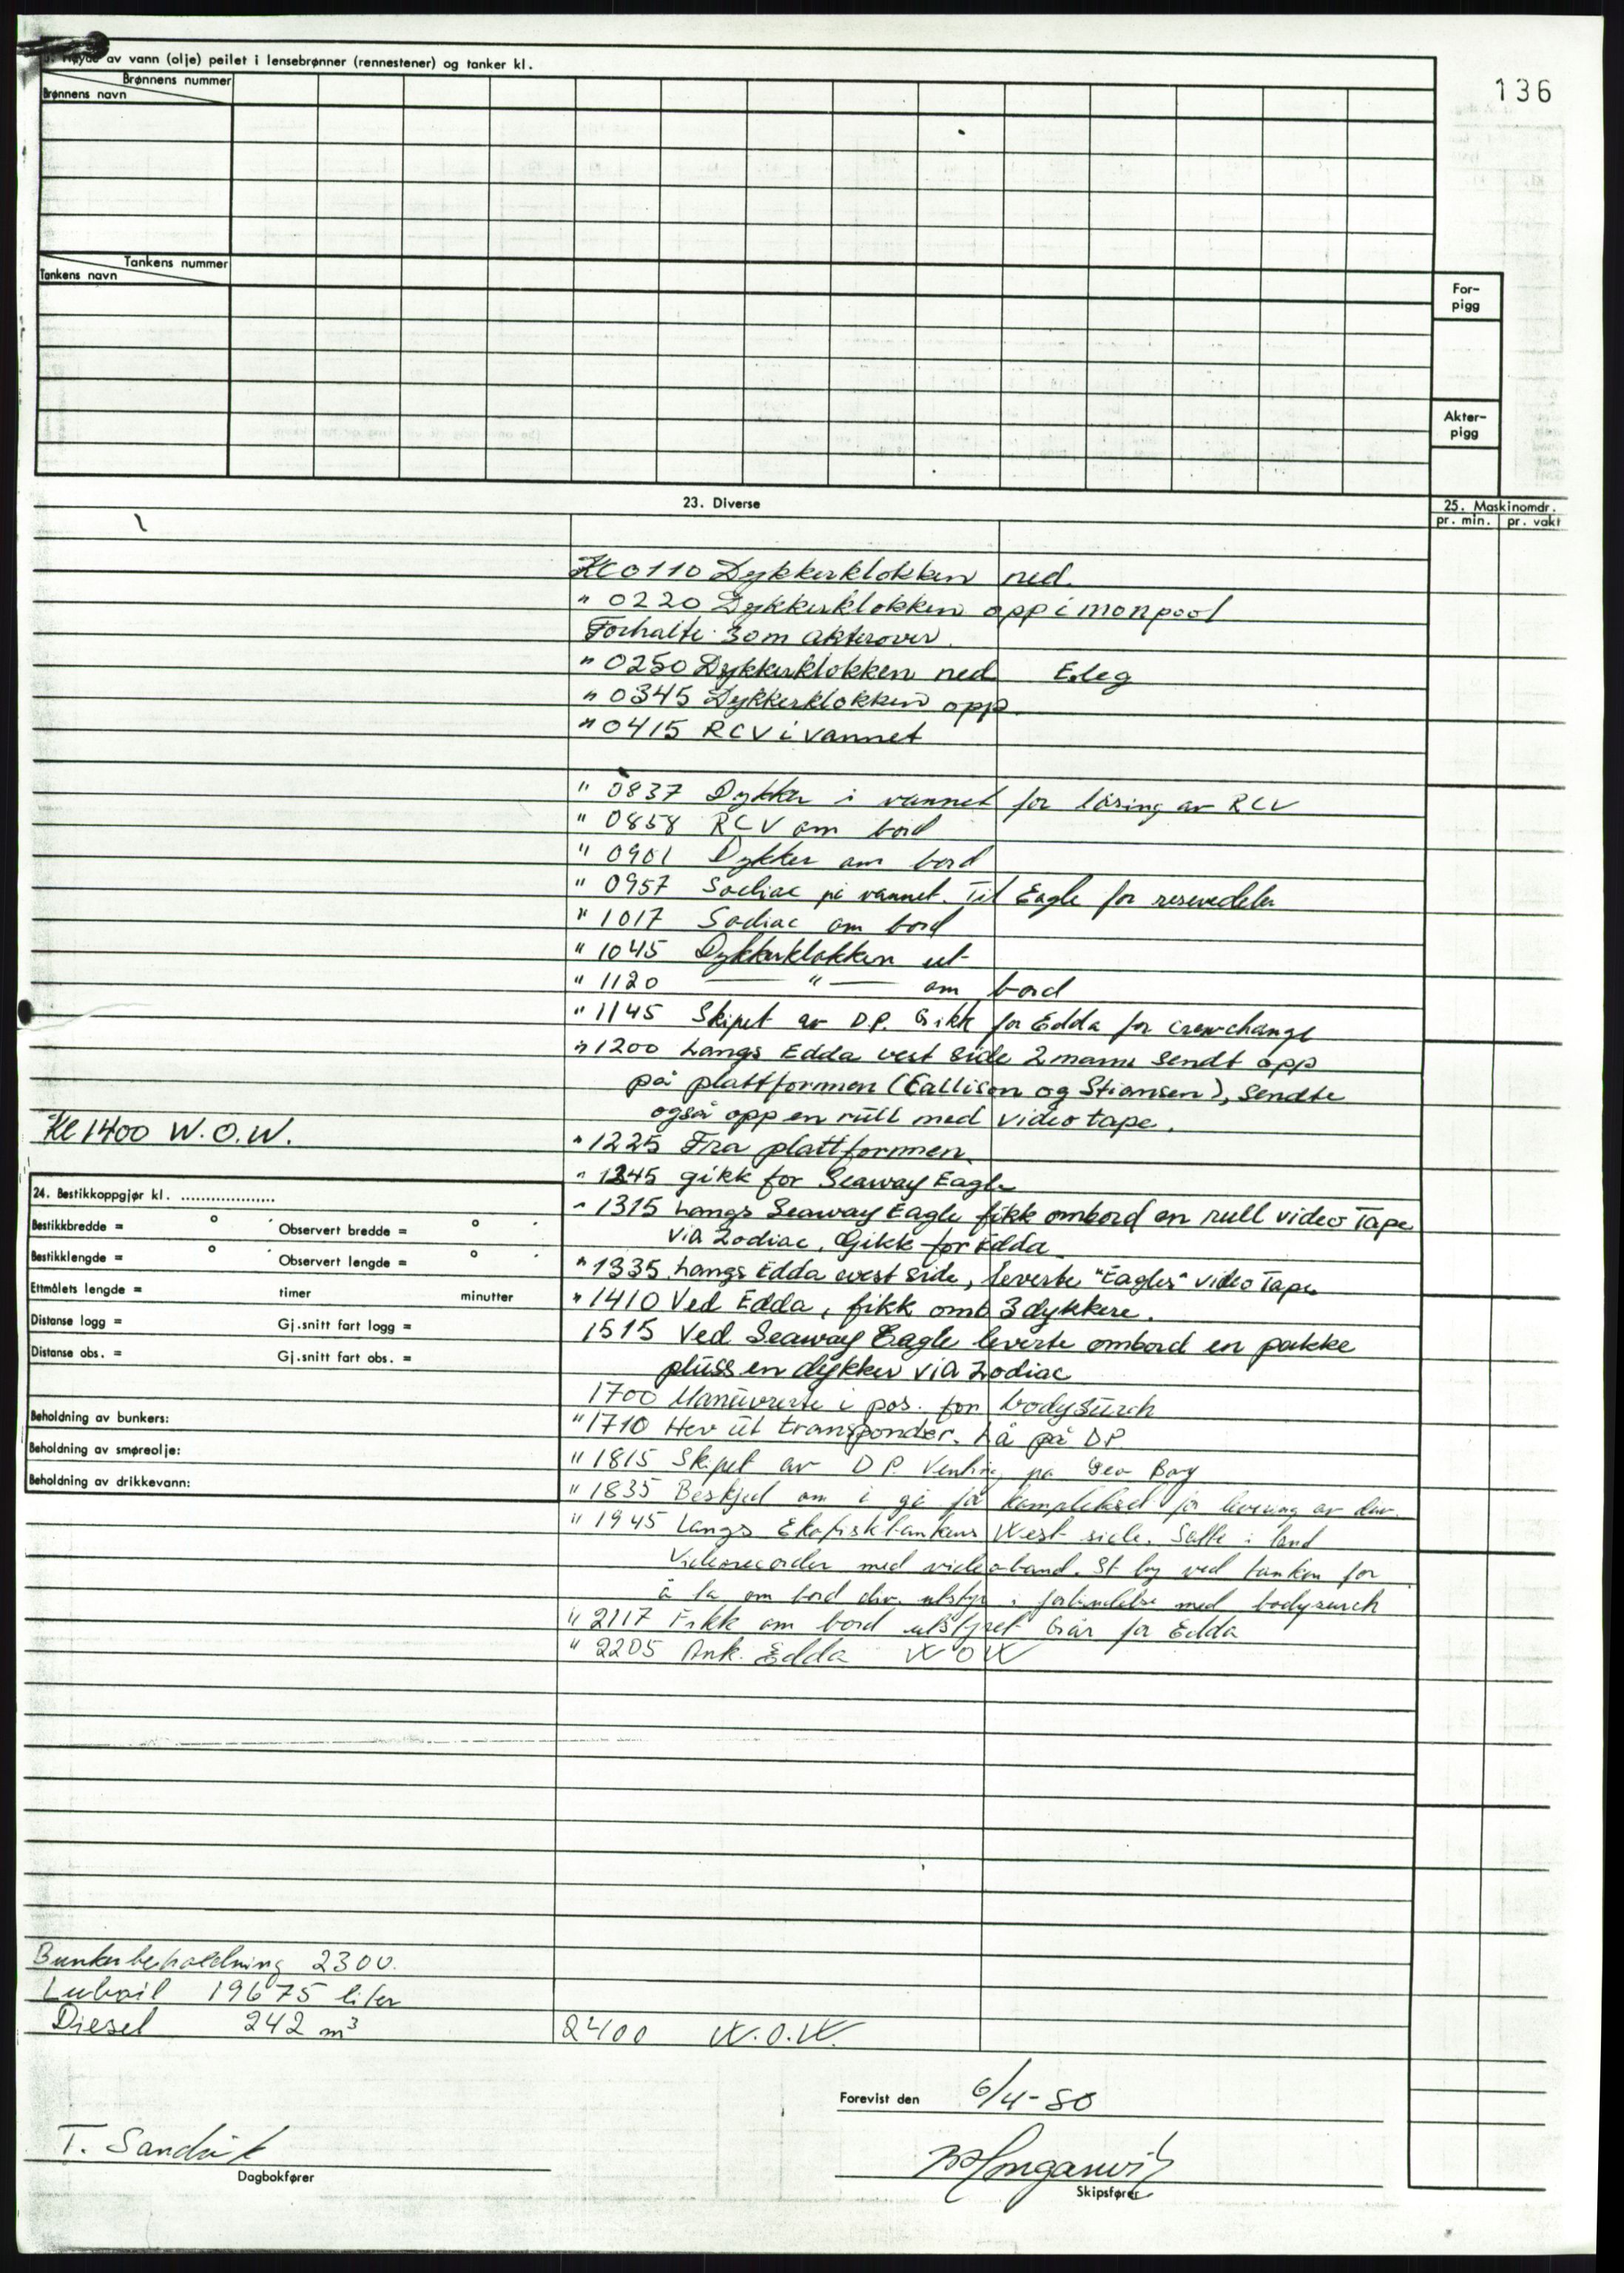 136
av vann (olje) peilet i lensebrønner (rennestener) og tanker kl.
Brønnens nummer
Brønnens navn
Tankens nummer
Tankens navn
For-
pigg
Akter-
pigg
23. Diverse
25. Maskinomdr.
pr. min. pr. vakt
Kl 0110 Dykkerklokken ned.
" 0220 Dykkerklokken opp i monpool
Forhalte 30m akterover.
" 0250 Dykkerklokken ned
" 0345 Dykkerklokken opp.
" 0415 RCV i vannet
" 0837 Dykker i vannet for låsing av RCV
" 0858 RCV om bord
" 0901 Dykker om bord
" 0957 Sodiac på vannet. Til Eagle for reservedeler
" 1017 Sodiac om bord
" 1045 Dykkerklokken ut
" 1120 — " — om bord
" 1145 Skipet av D.P. Gikk for Edda for crewchange
" 1200 Langs Edda vest side 2 mann sendt opp
på plattformen (Eallison og Stiansen), sendte
også opp en rull med video tape.
Kl 1400 W.O.W.
" 1225 Fra plattformen.
" 1245 gikk for Seaway Eagle
" 1315 Langs Seaway Eagle fikk ombord en rull video Tape
via Zodiac, Gikk for Edda.
" 1335 Langs Edda vest side, leverte "Eagles" video Tape
" 1410 Ved Edda, fikk omb 3 dykkere.
1515 Ved Seaway Eagle leverte ombord en pakke
pluss en dykker via Zodiac
1700 Manøvrerte i pos. for bodysurch
" 1710 Hev ut transponder. Lå på DP.
" 1815 Skipet av D.P. Venting på Geo Boy
" 1835 Beskjed om å gå for komplekset for levering av div.
" 1945 Langs Ekofisktankens West side. Satte i land
Videorecorder med videoband. St by ved tanken for
å ta om bord div. utstyr i forbindelse med bodysurch
" 2117 Fikk om bord utstyret Går for Edda
" 2205 Ank. Edda WOW
24. Bestikkoppgjør kl. ...................
Bestikkbredde = o ' Observert bredde = o '
Bestikklengde = o ' Observert lengde = o '
Ettmålets lengde = timer minutter
Distanse logg = Gj.snitt fart logg =
Distanse obs. = Gj.snitt fart obs. =
Beholdning av bunkers:
Beholdning av smøreolje:
Beholdning av drikkevann:
Bunkerbeholdning 2300.
Luboil 19675 liter
Diesel 242 m³
2400 W.O.W.
Forevist den 6/4-80
T. Sandvik
Dagbokfører
Skipsfører